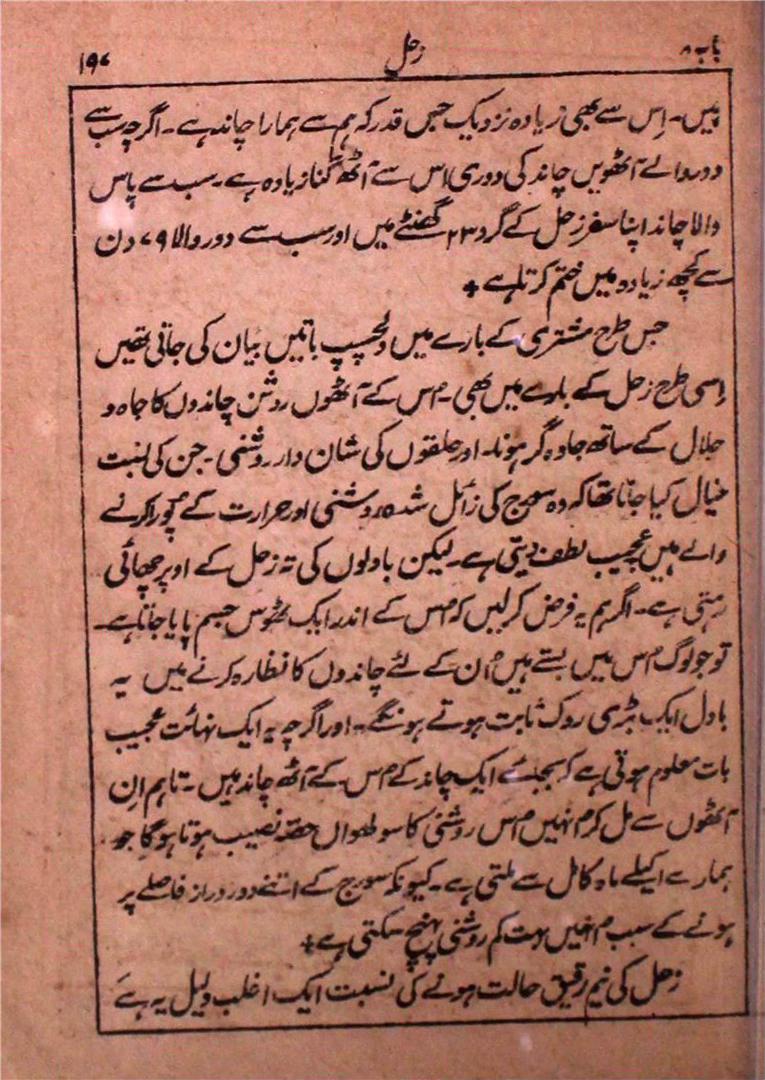 باب ۸ زحل ۱۹۷
ہیں۔ اِس سے بھی زیادہ نزدیک جس قدر کہ ہم سے ہمارا چاند ہے۔ اگرچہ سب سے
دور والے آٹھویں چاند کی دوری اس سے آٹھ گنا زیادہ ہے۔ سب سے پاس
والا چاند اپنا سفر زحل کے گرد ۲۳ گھنٹے میں اور سب سے دور والا ۷۹ دن
سے کچھ زیادہ میں ختم کرتا ہے +
جس طرح مشتری کے بارے میں دلچسپ باتیں بیان کی جاتی تھیں
اِسی طرح زحل کے بارے میں بھی۔ اُس کے آٹھوں روشن چاندوں کا جاہ و
جلال کے ساتھ جلوہ گر ہونا۔ اور حلقوں کی شان دار روشنی۔ جن کی نسبت
خیال کیا جاتا تھا کہ وہ سورج کی زائل شدہ روشنی اور حرارت کے پُورا کرنے
والے ہیں عجیب لطف دیتی ہے۔ لیکن بادلوں کی تہ زحل کے اوپر چھائی
رہتی ہے۔ اگر ہم یہ فرض کر لیں کہ اُس کے اندر ایک ٹھوس جسم پایا جاتا ہے۔
تو جو لوگ اُس میں بستے ہیں اُن کے لئے چاندوں کا نظارہ کرنے میں یہ
بادل ایک بڑی روک ثابت ہوتے ہونگے۔ اور اگرچہ یہ ایک نہائت عجیب
بات معلوم ہوتی ہے کہ بجائے ایک چاند کے اُس کے آٹھ چاند ہیں۔ تاہم اِن
آٹھوں سے مل کر اُنہیں اُس روشنی کا سولھواں حصّہ نصیب ہوتا ہوگا جو
ہمارے اکیلے ماہ کامل سے ملتی ہے۔ کیونکہ سورج کے اتنے دور دراز فاصلے پر
ہونے کے سبب اُنہیں بہت کم روشنی پہنچ سکتی ہے +
زحل کی نیم رقیق حالت ہونے کی نسبت ایک اغلب دلیل یہ ہے